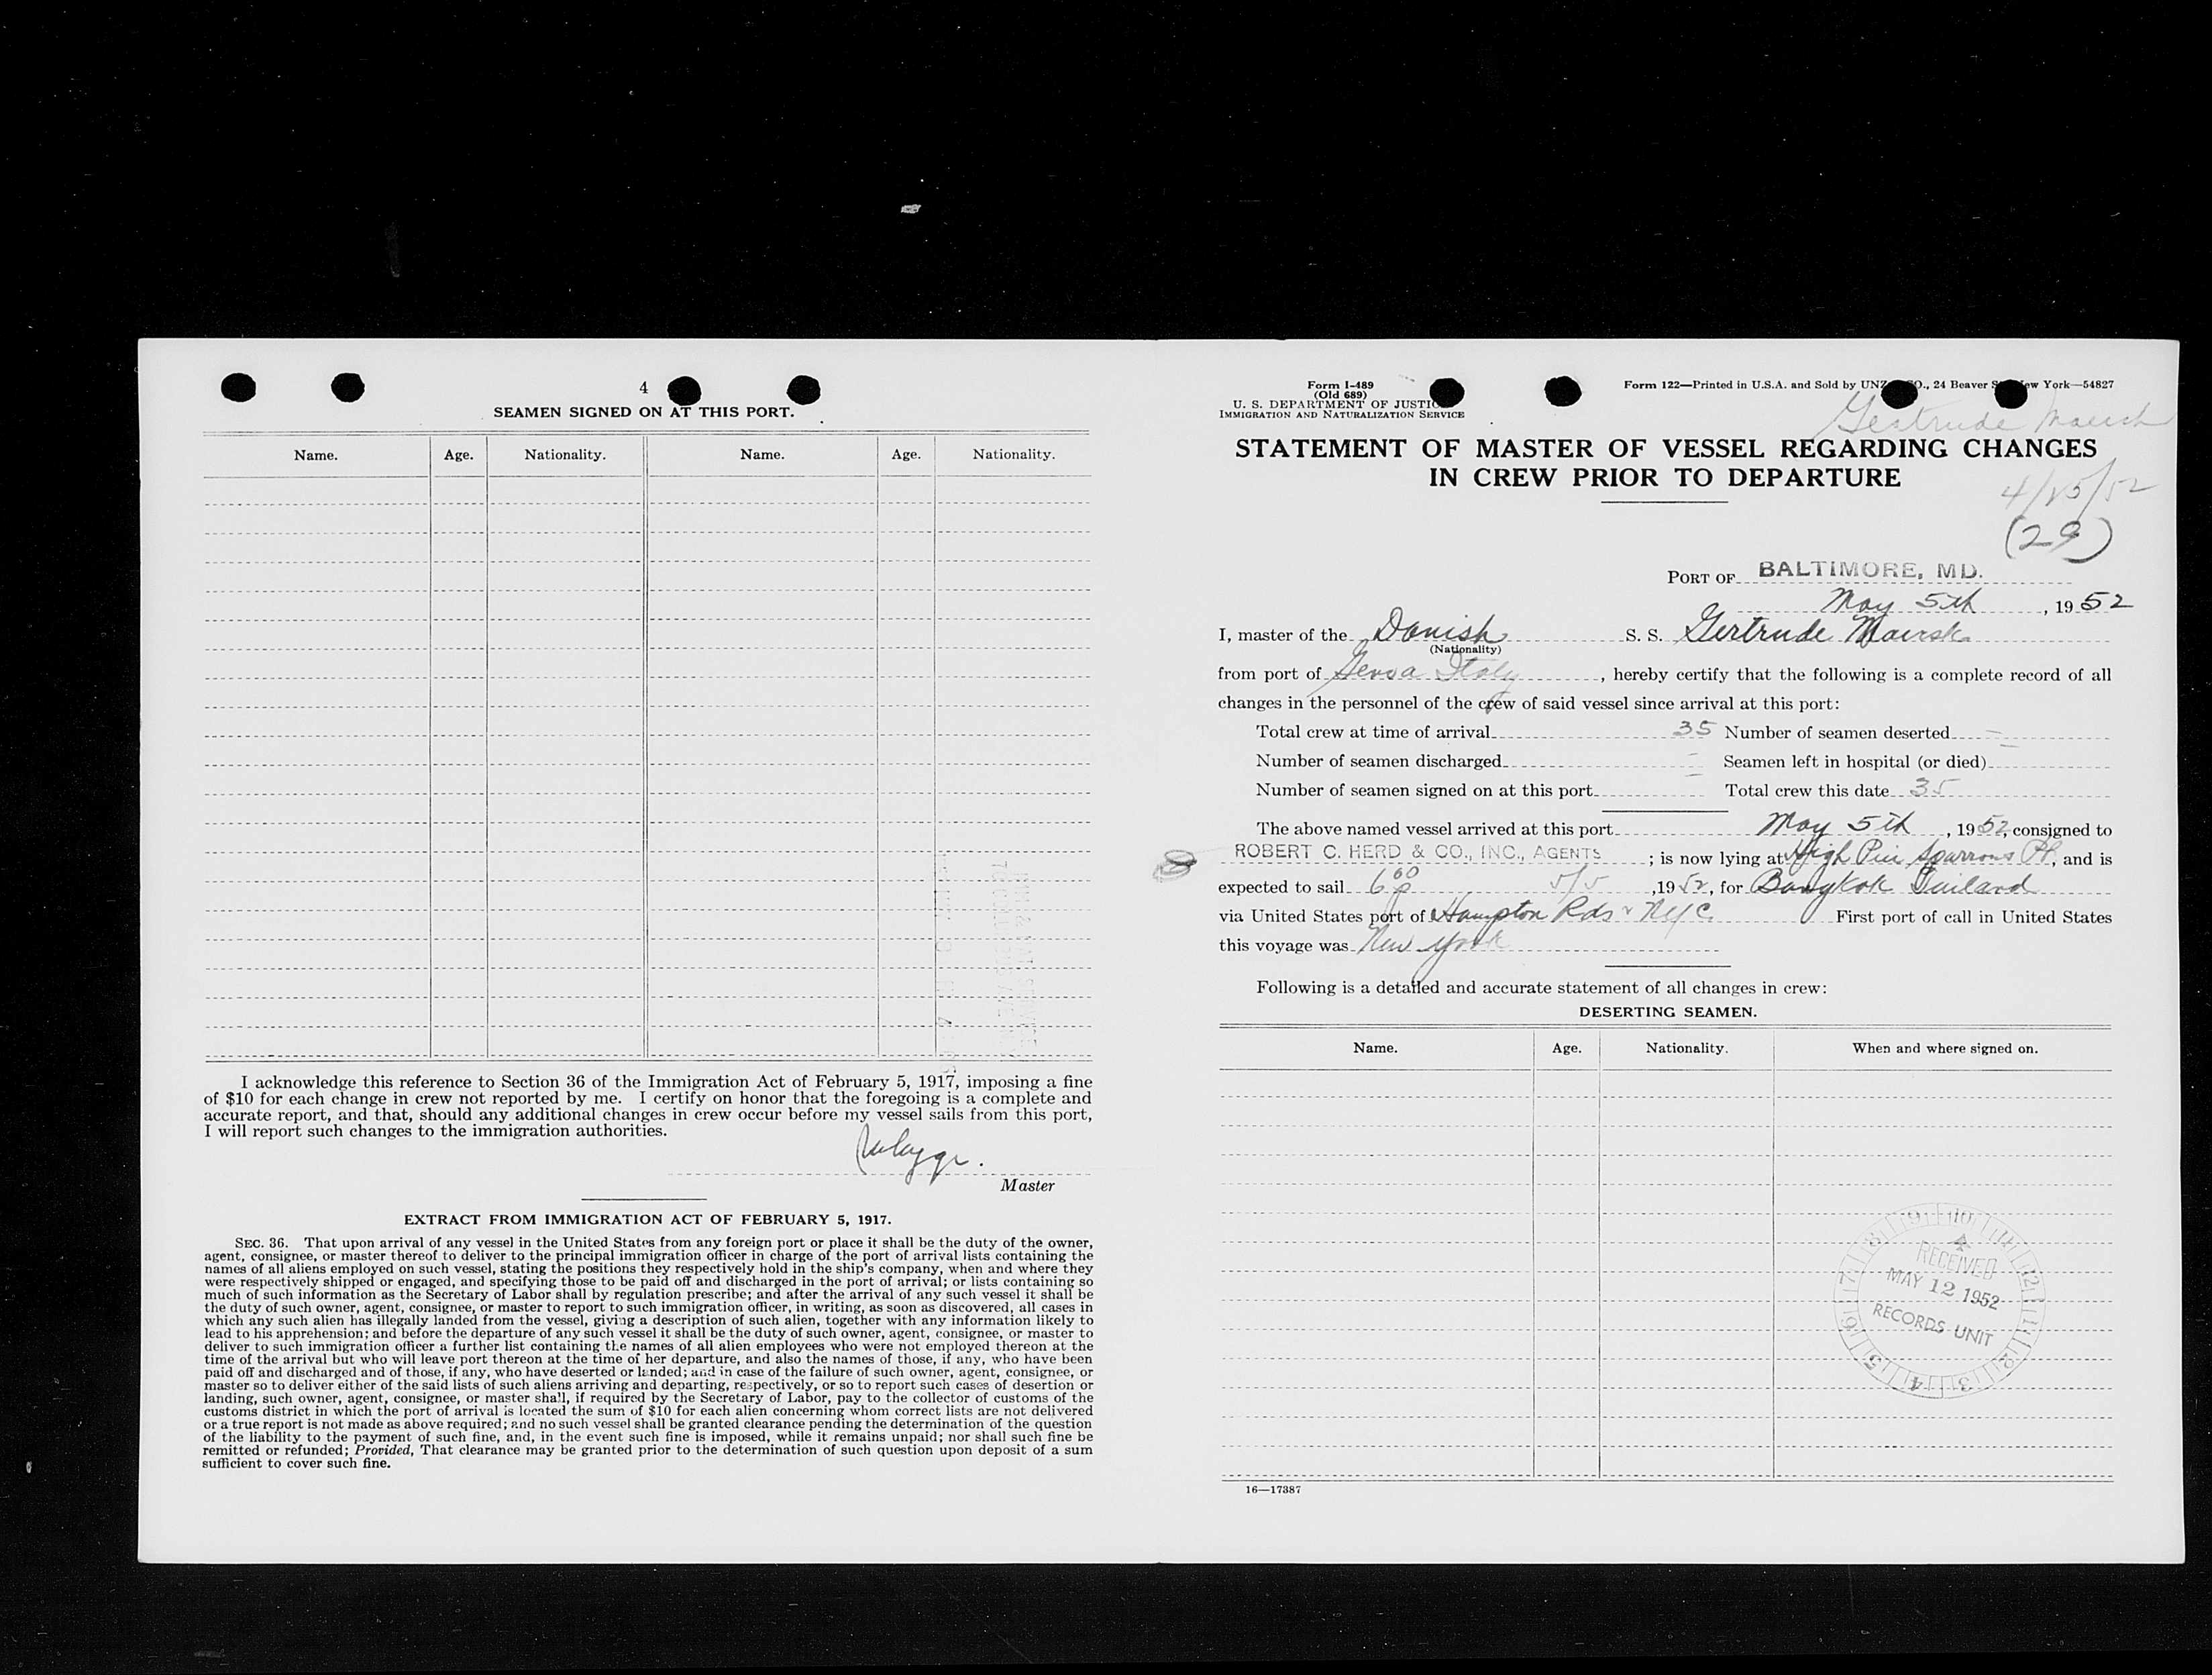 4
SEAMEN SIGNED ON AT THIS PORT.
Name. Age. Nationality. Name. Age. Nationality.
I acknowledge this reference to Section 36 of the Immigration Act of February 5, 1917, imposing a fine
of $10 for each change in crew not reported by me. I certify on honor that the foregoing is a complete and
accurate report, and that, should any additional changes in crew occur before my vessel sails from this port,
I will report such changes to the immigration authorities.
Master
EXTRACT FROM IMMIGRATION ACT OF FEBRUARY 5, 1917.
SEC. 36. That upon arrival of any vessel in the United States from any foreign port or place it shall be the duty of the owner,
agent, consignee, or master thereof to deliver to the principal immigration officer in charge of the port of arrival lists containing the
names of all aliens employed on such vessel, stating the positions they respectively hold in the ship's company, when and where they
were respectively shipped or engaged, and specifying those to be paid off and discharged in the port of arrival; or lists containing so
much of such information as the Secretary of Labor shall by regulation prescribe; and after the arrival of any such vessel it shall be
the duty of such owner, agent, consignee, or master to report to such immigration officer, in writing, as soon as discovered, all cases in
which any such alien has illegally landed from the vessel, giving a description of such alien, together with any information likely to
lead to his apprehension; and before the departure of any such vessel it shall be the duty of such owner, agent, consignee, or master to
deliver to such immigration officer a further list containing the names of all alien employees who were not employed thereon at the
time of the arrival but who will leave port thereon at the time of her departure, and also the names of those, if any, who have been
paid off and discharged and of those, if any, who have deserted or landed; and in case of the failure of such owner, agent, consignee, or
master so to deliver either of the said lists of such aliens arriving and departing, respectively, or so to report such cases of desertion or
landing, such owner, agent, consignee, or master shall, if required by the Secretary of Labor, pay to the collector of customs of the
customs district in which the port of arrival is located the sum of $10 for each alien concerning whom correct lists are not delivered
or a true report is not made as above required; and no such vessel shall be granted clearance pending the determination of the question
of the liability to the payment of such fine, and, in the event such fine is imposed, while it remains unpaid; nor shall such fine be
remitted or refunded; Provided, That clearance may be granted prior to the determination of such question upon deposit of a sum
sufficient to cover such fine.
Form I-489
(Old 689)
U. S. DEPARTMENT OF JUSTIC
IMMIGRATION AND NATURALIZATION SERVICE
Form 122—Printed in U.S.A. and Sold by UNZ O., 24 Beaver S ew York—54827
Gertrude Maersk
STATEMENT OF MASTER OF VESSEL REGARDING CHANGES
IN CREW PRIOR TO DEPARTURE
4/25/52
(29)
PORT OF BALTIMORE, MD.
May 5th, 1952
I, master of the Danish S. S. Gertrude Maersk
(Nationality)
from port of Genoa Italy, hereby certify that the following is a complete record of all
changes in the personnel of the crew of said vessel since arrival at this port:
Total crew at time of arrival 35 Number of seamen deserted —
Number of seamen discharged — Seamen left in hospital (or died) —
Number of seamen signed on at this port — Total crew this date 35
The above named vessel arrived at this port May 5th, 1952, consigned to
ROBERT C. HERD & CO., INC., AGENTS ; is now lying at High Pier Sparrows Pt, and is
expected to sail 6 00 p 5/5, 1952, for Bangkok Tailand
via United States port of Hampton Rds & NYC. First port of call in United States
this voyage was New York
Following is a detailed and accurate statement of all changes in crew:
DESERTING SEAMEN.
Name. Age. Nationality. When and where signed on.
RECEIVED
MAY 12 1952
RECORDS UNIT
16—17387